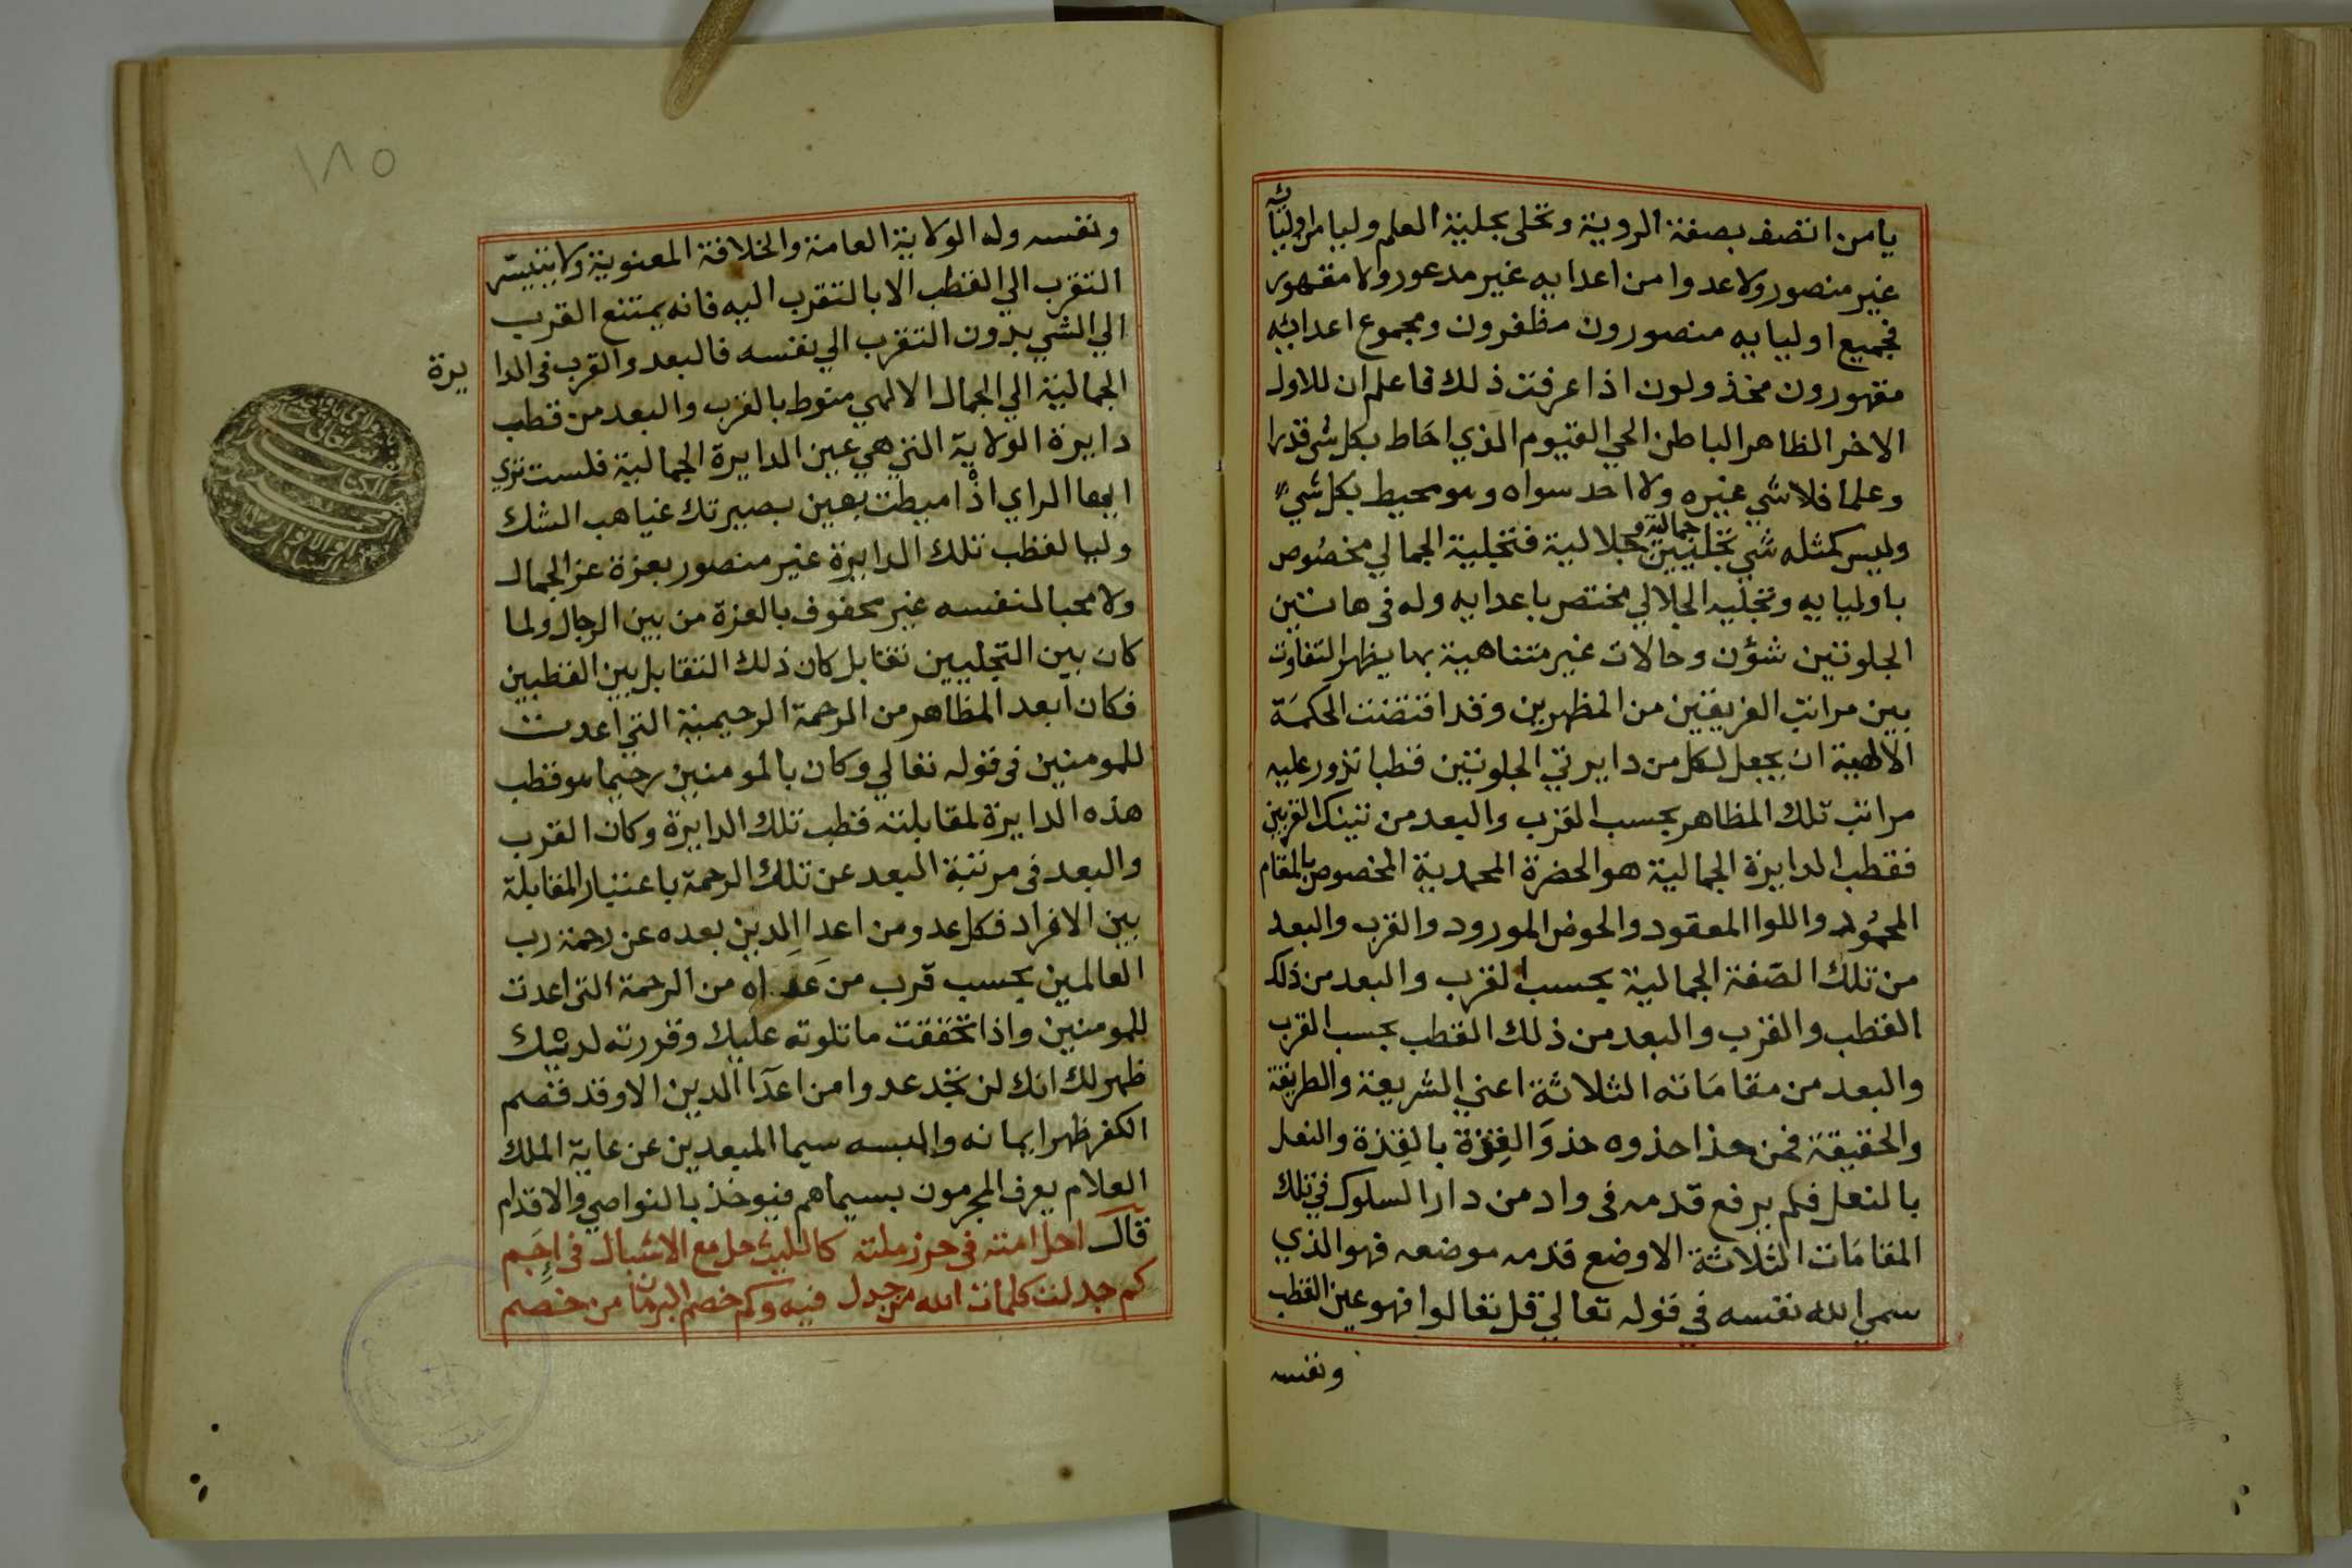 يامن اتصف بصفة الروية وتحلى بحلية العلم وليا من اوليائه
غير منصور ولا عدوا من اعدايه غير مدعور ولا مقهور
فجميع اوليايه منصورون مظفرون ومجموع اعدائه
مقهورون مخذولون اذا عرفت ذلك فاعلم ان للاول
الاخر الظاهر الباطن الحي القيوم الذي احاط بكل شي قدرا
وعلما فلا شي غيره ولا احد سواه وهو محيط بكل شي
وليس كمثله شي تجليين جمالية وجلالية فتجلية الجمالي مخصوص
باوليايه وتجليه الجلالي مختص باعدايه وله في هاتين
الجلوتين شؤن وحالات غير متناهية بها يظهر التفاوت
بين مراتب الفريقين من المظهرين وقد اقتضت الحكمة
الالهية ان يجعل لكل من دايرتي الجلوتين قطبا تدور عليه
مراتب تلك المظاهر بحسب القرب والبعد من تينك القربين
فقطب الدايرة الجمالية هو الحضرة المحمدية المخصوص بالمقام
المحمود واللوا المعقود والحوض المورود والقرب والبعد
من تلك الصفة الجمالية بحسب القرب والبعد من ذلك
القطب والقرب والبعد من ذلك القطب بحسب القرب
والبعد من مقاماته الثلاثة اعني الشريعة والطريقة
والحقيقة فمن حذا حذوه حذو القذة بالقذة والنعل
بالنعل فلم يرفع قدمه في واد من دار السلوك في تلك
المقامات الثلاثة الا وضع قدمه موضعه فهو الذي
سمي الله نفسه في قوله تعالي قل تعالوا فهو عين القطب
ونفسه
١٨٥
ونفسه وله الولاية العامة والخلافة المعنوية ولا يتيسر
التقرب الي القطب الا بالتقرب اليه فانه يمتنع القرب
الي الشي بدون التقرب الي نفسه فالبعد والقرب في الدا يرة
الجمالية الي الجمال الالهي منوط بالقرب والبعد من قطب
دايرة الولاية التي هي عين الدايرة الجمالية فلست تري
ايها الراي اذا اميطت بعين بصيرتك غياهب الشك
وليا لقطب تلك الدايرة غير منصور بعزة عز الجمال
ولا محبا لنفسه غير محفوف بالعزة من بين الرجال ولما
كان بين التجليين تقابل كان ذلك التقابل بين القطبين
فكان ابعد المظاهر من الرحمة الرحيمية التي اعدت
للمومنين في قوله تعالي وكان بالمومنين رحيما هو قطب
هذه الدايرة لمقابلته قطب تلك الدايرة وكان القرب
والبعد في مرتبة البعد عن تلك الرحمة باعتبار المقابلة
بين الافراد فكل عدو من اعدا الدين بعده عن رحمة رب
العالمين بحسب قرب من عداه من الرحمة التي اعدت
للمومنين واذا تحققت ما تلوته عليك وقررته لديك
ظهر لك انك لن تجد عدوا من اعدا الدين الا وقد قصم
الكفر ظهر ايمانه والبسه سيما المبعدين عن عاية الملك
العلام يعرف المجرمون بسيماهم فيوخذ بالنواصي والاقدام
قال احل امته في حرز ملته كالليث حل مع الاشبال في اجم
كم جدلت كلمات الله من جدل فيه وكم خصم البرهان من خصم